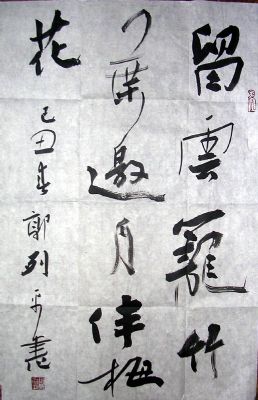 留雲籠竹
葉邀月伴梅
花 己丑春 郭列平書